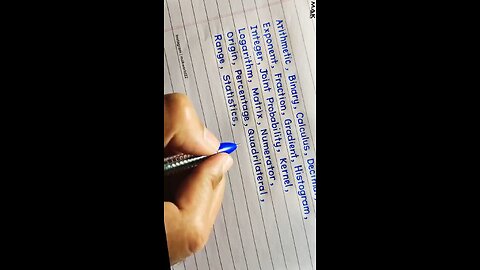 Arithmetic, Binary, Calculus,
Exponent, Fraction, Gradient, Histogram,
Integer, Joint Probability, Kernel,
Logarithm, Matrix, Numerator,
Origin, Percentage, Quadrilateral,
Range, Statistics,